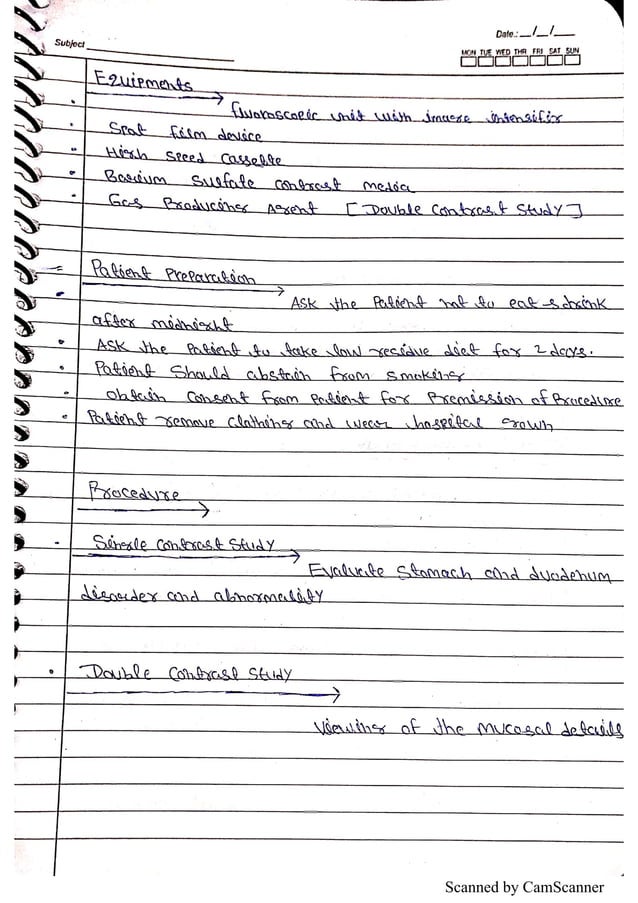 Date.: __/__/__
Subject
MON TUE WED THR FRI SAT SUN
Equipments
fluoroscopic unit with image intensifir
Spot film device
High Speed Cassette
Barium Sulfate contrast media
Gas Producing Agent [Double Contrast Study]
Patient Preparation
ASK the Patient not to eat & drink
after midnight
ASK the Patient to take low residue diet for 2 days.
Patient Should abstain from smoking
obtain consent from Patient for Premission of Procedure
Patient remove clothing and wear hospital gown
Procedure
Single Contrast Study
Evaluate Stomach and duodenum
disorder and abnormality
Double Contrast Study
Viewing of the Mucosal details
Scanned by CamScanner